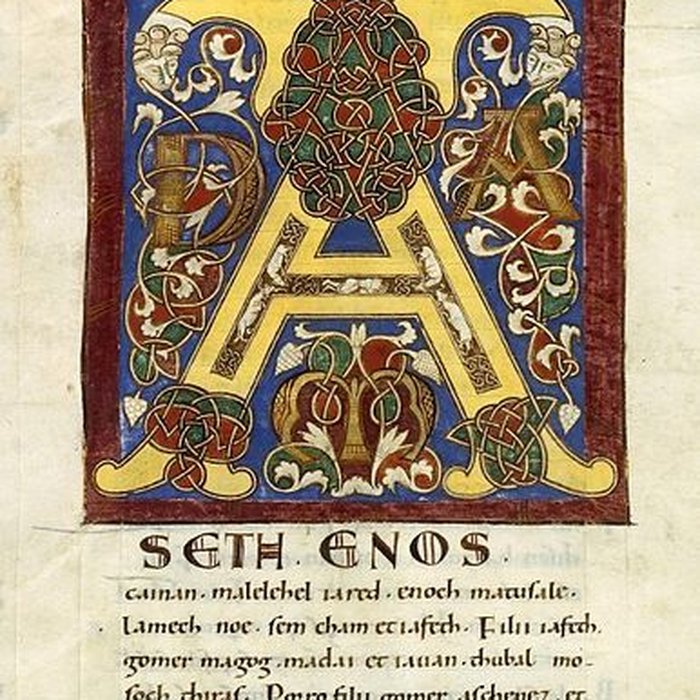 A
D A
M
SETH · ENOS ·
cainan · malelehel iared · enoch matusale ·
lamech noe · sem cham et iafeth · Filii iafeth ·
gomer magog · madai et iauan · thubal mo-
soch thiras · Porro filii gomer aschenez, et